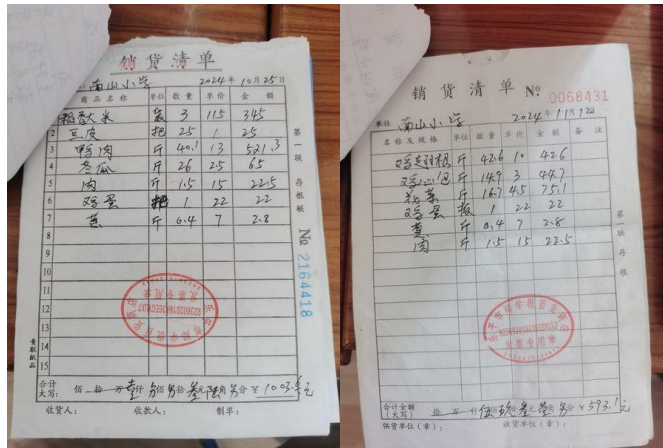 销货清单
南山小学 2024年10月25日
商品名称 单位 数量 单价 金额
稻香大米 袋 3 115 345
2 豆皮 把 25 1 25
3 鸭肉 斤 40.1 13 521.3
4 冬瓜 斤 26 2.5 65
5 肉 斤 1.5 15 22.5
6 鸡蛋 1 22 22
7 葱 斤 0.4 7 2.8
8
9
10
11
12
13
14
15
第一联 存根联
№ 2164418
发票专用章
合计
大写: 佰 拾 万 壹仟 另佰 另拾 叁元 陆角 另分 ¥ 1003.6元
收货人: 收款人: 制单:
销货清单 № 0068431
单位 南山小学 2024年11月12日
名称及规格 单位 数量 单价 金额 备注
鸡翅根 斤 42.6 10 426
鸡心包 斤 14.9 3 44.7
花菜 斤 16.7 4.5 75.1
鸡蛋 板 1 22 22
葱 斤 0.4 7 2.8
肉 斤 1.5 15 22.5
第一联 存根
发票专用章
合计金额
(大写) 拾 万 仟 伍佰 玖拾 叁元 壹角 另分 ¥ 593.1元
供货单位(章): 收货单位(章):